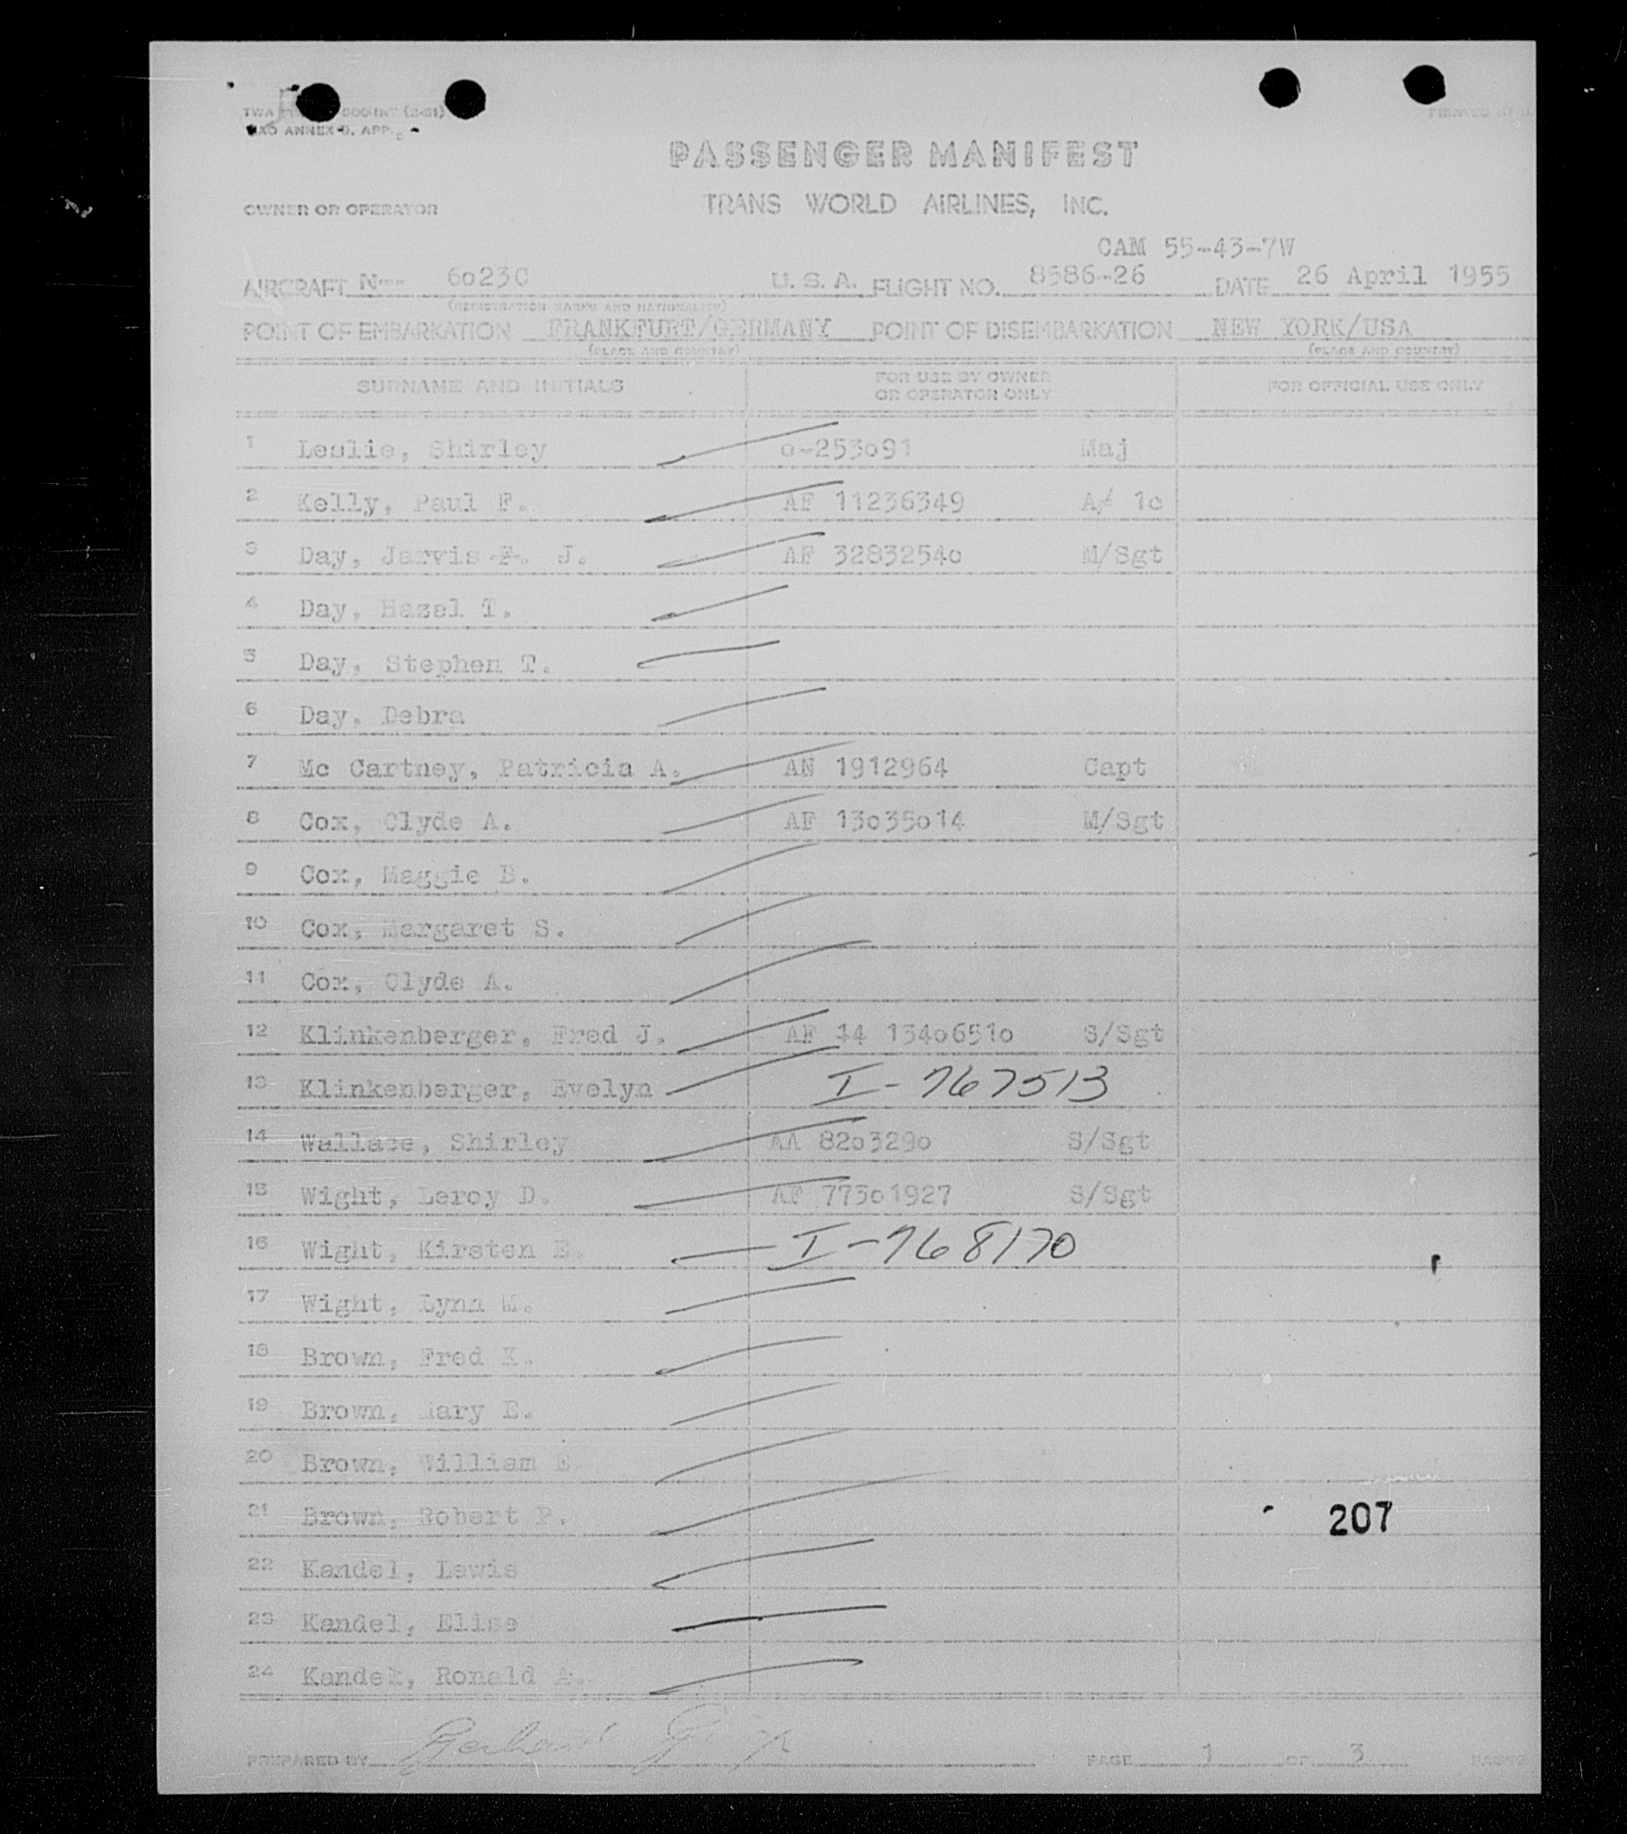 TWA
ICAO ANNEX 9, APP.
PASSENGER MANIFEST
OWNER OR OPERATOR TRANS WORLD AIRLINES, INC.
CAM 55-43-7W
AIRCRAFT N-- 6o23C U. S. A. FLIGHT NO. 8586-26 DATE 26 April 1955
(REGISTRATION MARKS AND NATIONALITY)
POINT OF EMBARKATION FRANKFURT/GERMANY POINT OF DISEMBARKATION NEW YORK/USA
(PLACE AND COUNTRY) (PLACE AND COUNTRY)
SURNAME AND INITIALS FOR USE BY OWNER OR OPERATOR ONLY FOR OFFICIAL USE ONLY
1 Leslie, Shirley o-253o91 Maj
2 Kelly, Paul F. AF 11236349 A/ 1c
3 Day, Jarvis F. J. AF 3283254o M/Sgt
4 Day, Hazel T.
5 Day, Stephen T.
6 Day, Debra
7 Mc Cartney, Patricia A. AN 1912964 Capt
8 Cox, Clyde A. AF 13o35o14 M/Sgt
9 Cox, Maggie B.
10 Cox, Margaret S.
11 Cox, Clyde A.
12 Klinkenberger, Fred J. AF 14 134o651o S/Sgt
13 Klinkenberger, Evelyn I-767513
14 Wallace, Shirley AA 82o329o S/Sgt
15 Wight, Leroy D. AF 773o1927 S/Sgt
16 Wight, Kirsten E. I-768170
17 Wight, Lynn M.
18 Brown, Fred K.
19 Brown, Mary E.
20 Brown, William E
21 Brown, Robert P.
207
22 Kandel, Lewis
23 Kandel, Elise
24 Kandel, Ronald A.
PREPARED BY PAGE 1 OF 3